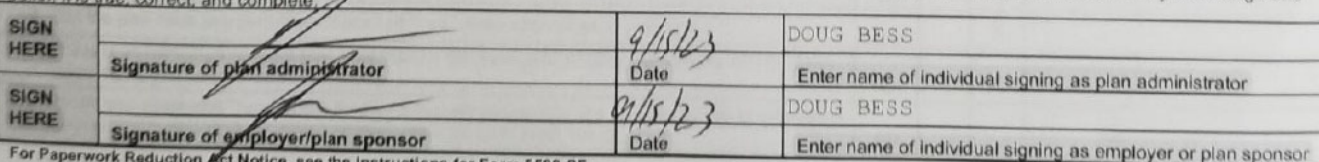 true, correct, and complete.
SIGN HERE 9/15/23 DOUG BESS
Signature of plan administrator Date Enter name of individual signing as plan administrator
SIGN HERE 9/15/23 DOUG BESS
Signature of employer/plan sponsor Date Enter name of individual signing as employer or plan sponsor
For Paperwork Reduction Act Notice, see the Instructions for Form